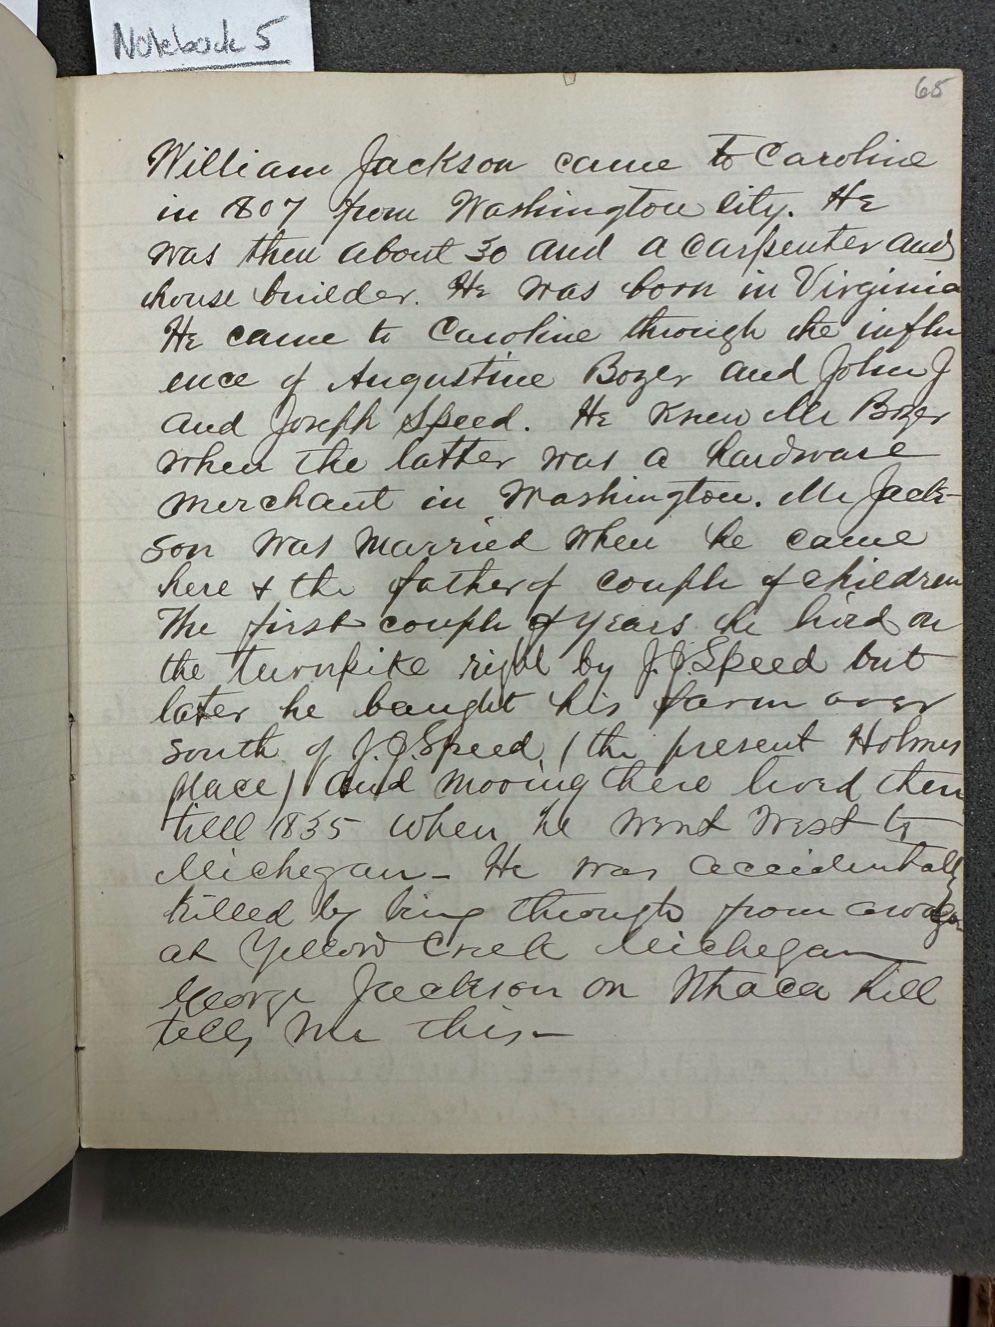 Notebook 5
65
William Jackson came to Caroline
in 1807 from Washington city. He
was then about 30 and a carpenter and
house builder. He was born in Virginia
He came to Caroline through the influ
ence of Augustine Bozer and John J
and Joseph Speed. He knew Mr Bozer
when the latter was a hardware
merchant in Washington. Mr Jack-
son was married when he came
here & the father of couple of children
The first couple of years he lived on
the turnpike right by J.J. Speed but
later he bought his farm over
south of J.J. Speed, (the present Holmes
place) and mooving there lived then
till 1835 when he went West to
Michegan - He was accidentally
killed by bing through from a wagon
at Yellow Creek Michegan
George Jackson on Ithaca hill
tells me this -